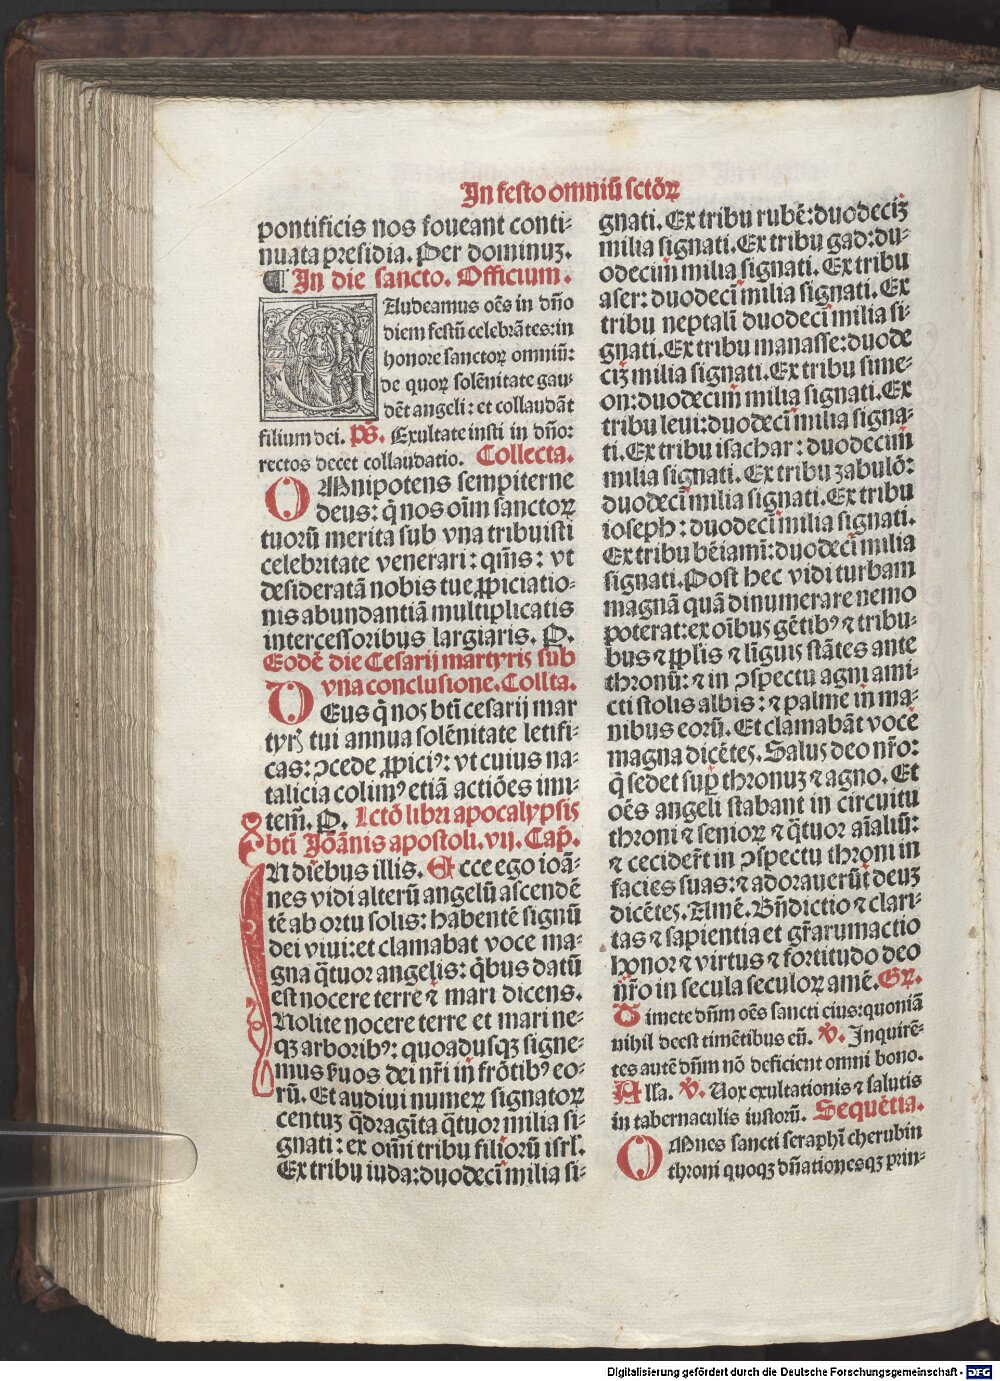 In festo omniū sctōꝝ
pontificis nos foueant conti-
nuata presidia. Per dominuꝫ.
¶ In die sancto. Officium.
GAudeamus oēs in dño
diem festū celebrātes: in
honore sanctoꝝ omniū:
de quoꝝ solēnitate gau-
dēt angeli: et collaudāt
filium dei. p̄s. Exultate iusti in dño:
rectos decet collaudatio. Collecta.
OMnipotens sempiterne
deus: q̄ nos oīm sanctoꝝ
tuorū merita sub vna tribuisti
celebritate venerari: qm̄s: vt
desideratā nobis tue ꝓpiciatio-
nis abundantiā multiplicatis
intercessoribus largiaris. P.
Eodē die Cesarij martyris sub
vna conclusione. Collta.
DEus q̄ nos bt̄i cesarij mar
tyrꝭ tui annua solēnitate letifi-
cas: ↄcede ꝓpiciꝰ: vt cuius na-
talicia colimꝰ etiā actiōes imi-
tem̄. P. Lctō libri apocalypsis
bt̄i Joānis apostoli. vij. Cap̄.
IN diebus illis. Ecce ego ioā-
nes vidi alterū angelū ascendē
tē ab ortu solis: habentē signū
dei viui: et clamabat voce ma-
gna q̄tuor angelis: qb̄us datū
est nocere terre ⁊ mari dicens.
Nolite nocere terre et mari ne-
qꝫ arboribꝰ: quoadusqꝫ signe-
mus ẜuos dei nr̄i in frōtibꝰ eo-
rū. Et audiui numeꝝ signatoꝝ
centuꝫ q̄dragīta q̄tuor milia si-
gnati: ex om̄i tribu filiorū isrl̄.
Ex tribu iuda: duodecī milia si-
gnati. Ex tribu rubē: duodeciꝫ
milia signati. Ex tribu gad: du-
odecim milia signati. Ex tribu
aser: duodecī milia signati. Ex
tribu neptali duodecī milia si-
gnati. Ex tribu manasse: duode
ciꝫ milia signati. Ex tribu sime-
on: duodecim milia signati. Ex
tribu leui: duodecī milia signa-
ti. Ex tribu isachar: duodecim
milia signati. Ex tribu zabulō:
duodecī milia signati. Ex tribu
ioseph: duodecī milia signati.
Ex tribu bēiamī: duodecī milia
signati. Post hec vidi turbam
magnā quā dinumerare nemo
poterat: ex oībus gētibꝰ ⁊ tribu-
bus ⁊ ppl̄is ⁊ līguis stātes ante
thronū: ⁊ in ↄspectu agni ami-
cti stolis albis: ⁊ palme in ma-
nibus eorū. Et clamabāt voce
magna dicētes. Salus deo nr̄o:
q̄ sedet sup̄ thronuꝫ ⁊ agno. Et
oēs angeli stabant in circuitu
throni ⁊ senioꝝ ⁊ q̄tuor aīaliū:
⁊ cecider̄t in ↄspectu throni in
facies suas: ⁊ adorauerūt deuꝫ
dicētes. Amē. Bn̄dictio ⁊ clari-
tas ⁊ sapientia et gr̄arum actio
honor ⁊ virtus ⁊ fortitudo deo
nr̄o in secula seculoꝝ amē. Gr̄.
Timete dn̄m oēs sancti eius: quoniā
nihil deest timētibus eū. ℣. Inquirē-
tes autē dn̄m nō deficient omni bono.
Alla. ℣. Uox exultationis ⁊ salutis
in tabernaculis iustorū. Sequētia.
OMnes sancti seraphī cherubin
throni quoqꝫ dn̄ationesqꝫ prin-
Digitalisierung gefördert durch die Deutsche Forschungsgemeinschaft - DFG